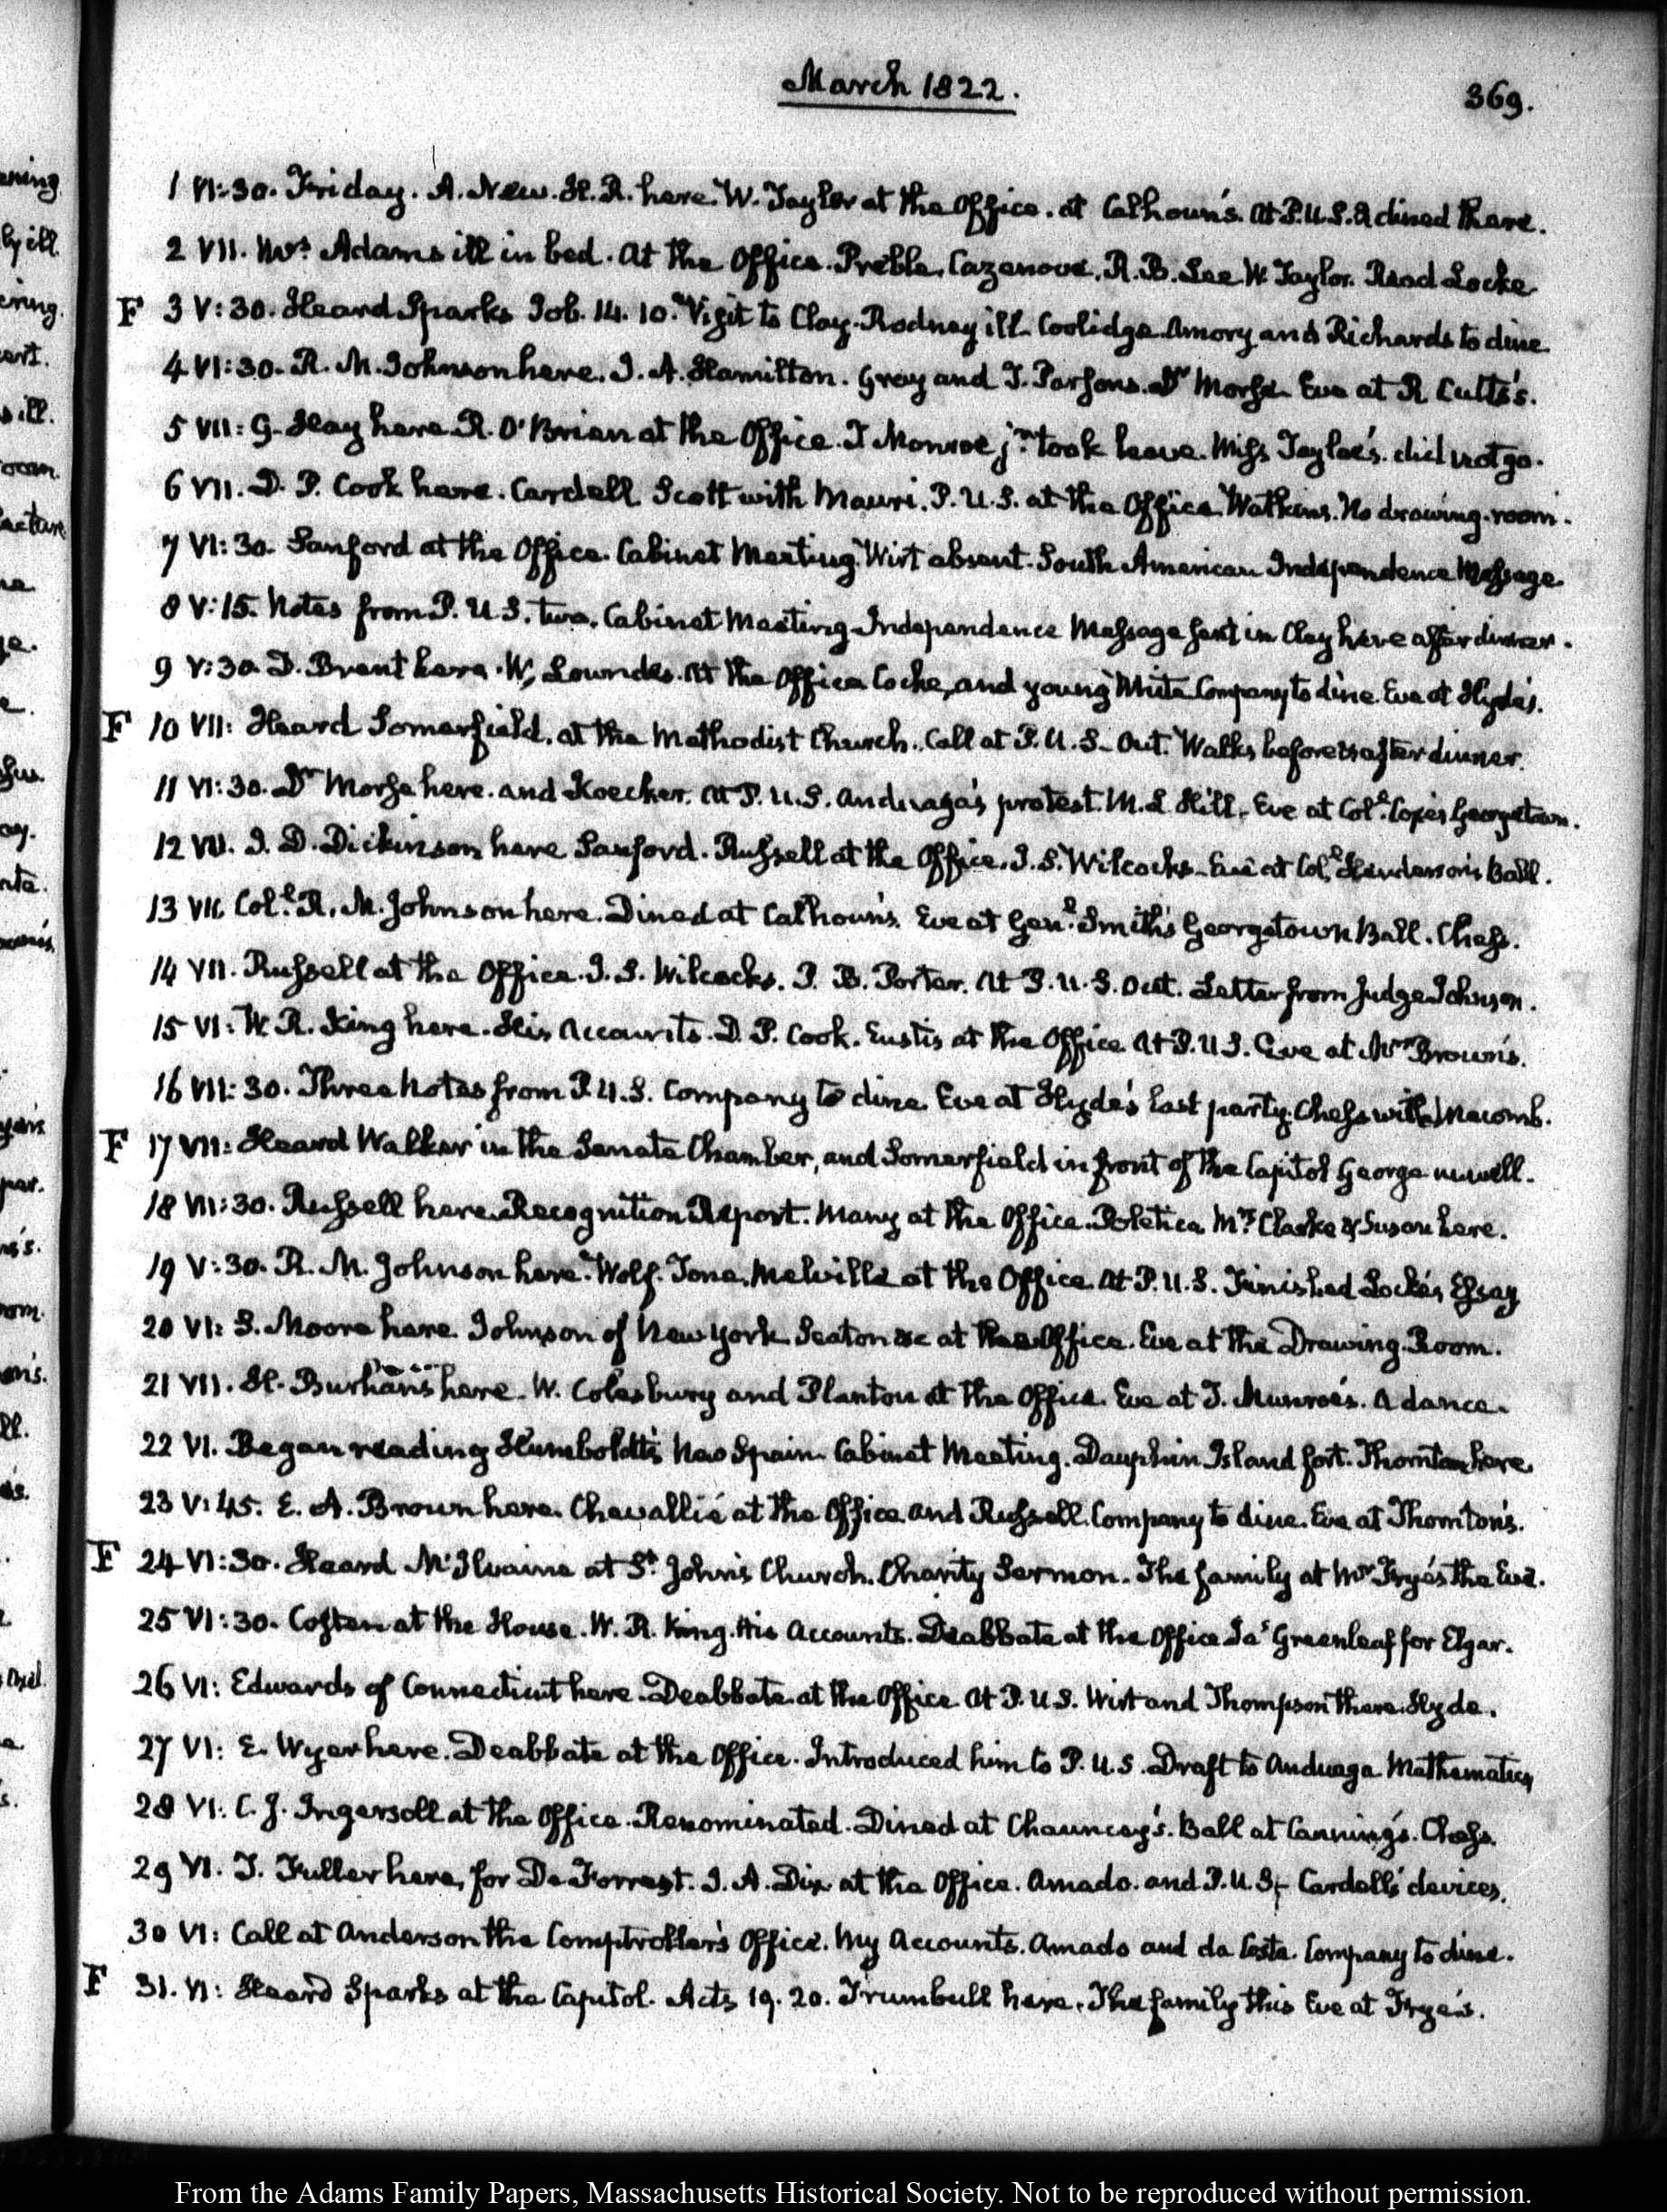 March 1822.
369.
1 VI:30. Friday. A. New. H. R. here. W. Taylor at the Office. at Calhoun's. At P.U.S. dined there.
2 VII. Mrs Adams ill in bed. At the Office. Preble, Cazenove, R. B. Lee W. Taylor. Read Locke
F 3 V:30. Heard Sparks Job. 14. 10. Visit to Clay. Rodney ill. Coolidge Amory and Richards to dine.
4 VI:30. R. M. Johnson here. J. A. Hamilton. Gray and T. Parsons. Dr Morse. Eve at R. Cutts's.
5 VII: G. Hay here. R. O'Brian at the Office. J Monroe jr took leave. Miss Tayloe's. did not go.
6 VII. D. P. Cook here. Cardell Scott with Mauri. P. U. S. at the Office. Watkins. No drawing-room.
7 VI:30. Sanford at the Office. Cabinet Meeting. Wirt absent. South American Independence Message
8 V:15. Notes from P. U. S. two. Cabinet Meeting. Independence Message sent in Clay here after dinner.
9 V:30 D. Brent here. W. Lowndes. At the Office Cocke, and young White. Company to dine. Eve at Hyde's.
F 10 VII: Heard Somerfield, at the Methodist Church. Call at P. U. S. Out. Walks before & after dinner.
11 VI:30. Dr Morse here. and Koecker. At P. U. S. Anduaga's protest. M. L. Hill. Eve at Coll. Cope's Georgetown.
12 VII. J. D. Dickinson here Sanford. Russell at the Office. J. S. Wilcocks. Eve at Coll. Henderson's Ball.
13 VII. Coll. R. M. Johnson here. Dined at Calhoun's. Eve at Genl. Smith's Georgetown Ball. Chess.
14 VII. Russell at the Office. J. S. Wilcocks. P. B. Porter. At P. U. S. Out. Letter from Judge Johnson.
15 VI: W. R. King here. His Accounts. D. P. Cook. Eustis at the Office. At P. U S. Eve at Mrs Brown's.
16 VII:30. Three Notes from P. U. S. Company to dine. Eve at Hyde's last party. Chess with Macomb.
F 17 VII: Heard Walker in the Senate Chamber, and Somerfield in front of the Capitol George unwell.
18 VII:30. Russell here. Recognition Report. Many at the Office. Poletica. Mrs Clarke & Susan here.
19 V:30. R. M. Johnson here. Wolf. Tone. Melville at the Office. At P. U. S. Finished Locke's Essay
20 VI: S. Moore here. Johnson of New York. Seaton &c at the Office. Eve at the Drawing-Room.
21 VII. H. Burhans here. W. Colesbury and Planton at the Office. Eve at T. Munroe's. A dance.
22 VI. Began reading Humboldt's New Spain. Cabinet Meeting. Dauphin Island fort. Thornton here
23 V:45. E. A. Brown here. Chevallié at the Office and Russell. Company to dine. Eve at Thornton's.
F 24 VI:30. Heard McIlvaine at St. John's Church. Charity Sermon. The family at Mrs Frye's the Eve.
25 VI:30. Costen at the House. W. R. King. His Accounts. Deabbate at the Office Jas Greenleaf for Elgar.
26 VI: Edwards of Connecticut here. Deabbate at the Office At P. U S. Wirt and Thompson there. Hyde.
27 VI: E. Wyer here. Deabbate at the Office. Introduced him to P. U. S. Draft to Anduaga. Mathematics
28 VI: C. J. Ingersoll at the Office. Renominated. Dined at Chauncey's. Ball at Canning's. Chess.
29 VI. T. Fuller here, for De Forrest. J. A. Dix at the Office. Amado. and P. U. S. Cardell's devices.
30 VI: Call at Anderson the Comptroller's Office. My Accounts. Amado and da Costa. Company to dine.
F 31. VI: Heard Sparks at the Capitol. Acts 19. 20. Trumbull here. The family this Eve at Frye's.
From the Adams Family Papers, Massachusetts Historical Society. Not to be reproduced without permission.